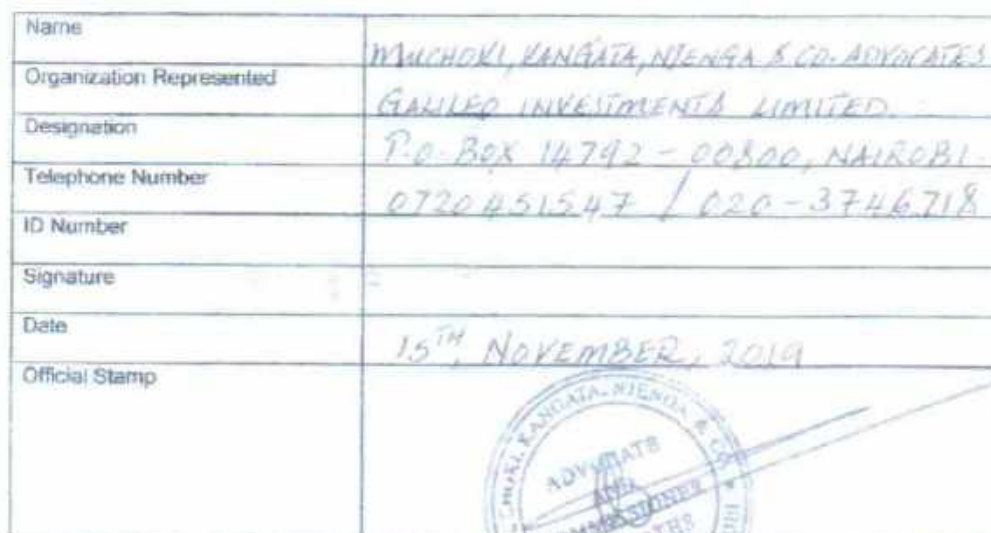 Name
MUCHOKI, KANGATA, NJENGA & CO. ADVOCATES
Organization Represented
GALILEO INVESTMENTS LIMITED.
Designation
P.O. BOX 14792 - 00800, NAIROBI.
Telephone Number
0720451547 / 020-3746718
ID Number
Signature
Date
15TH, NOVEMBER, 2019
Official Stamp
CHOKI, KANGATA, NJENGA & CO.
ADVOCATE
AND
COMMISSIONER